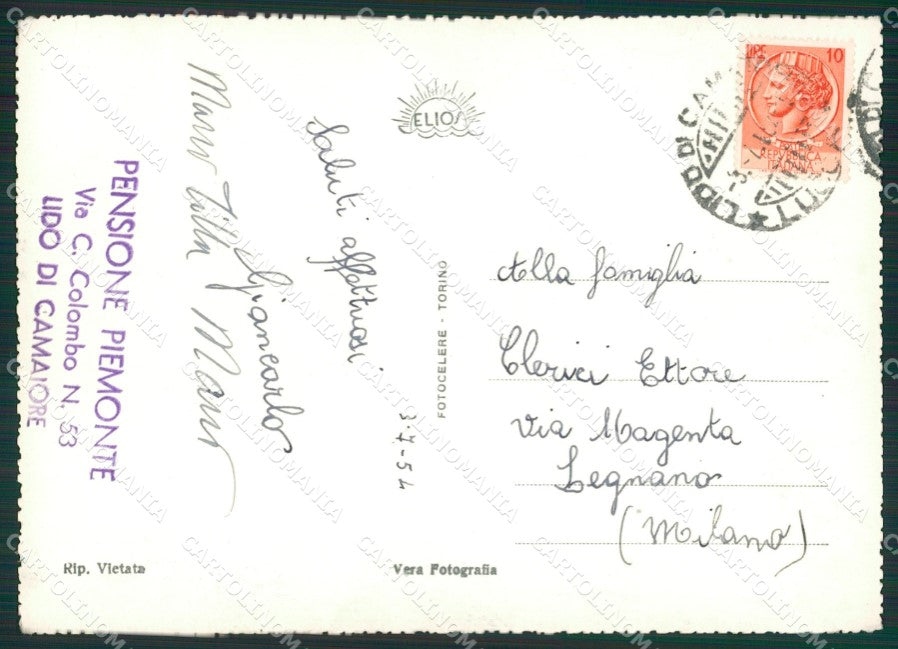 PENSIONE PIEMONTE
Via C. Colombo N. 53
LIDO DI CAMAIORE
Saluti affettuosi
Giancarlo
3-7-54
ELIOS
FOTOCELERE - TORINO
10
LIDO DI CAMAIORE
Alla famiglia
Clerici Ettore
Via Magenta
Legnano
(Milano)
Rip. Vietata
Vera Fotografia
CARTOLINOMANIA